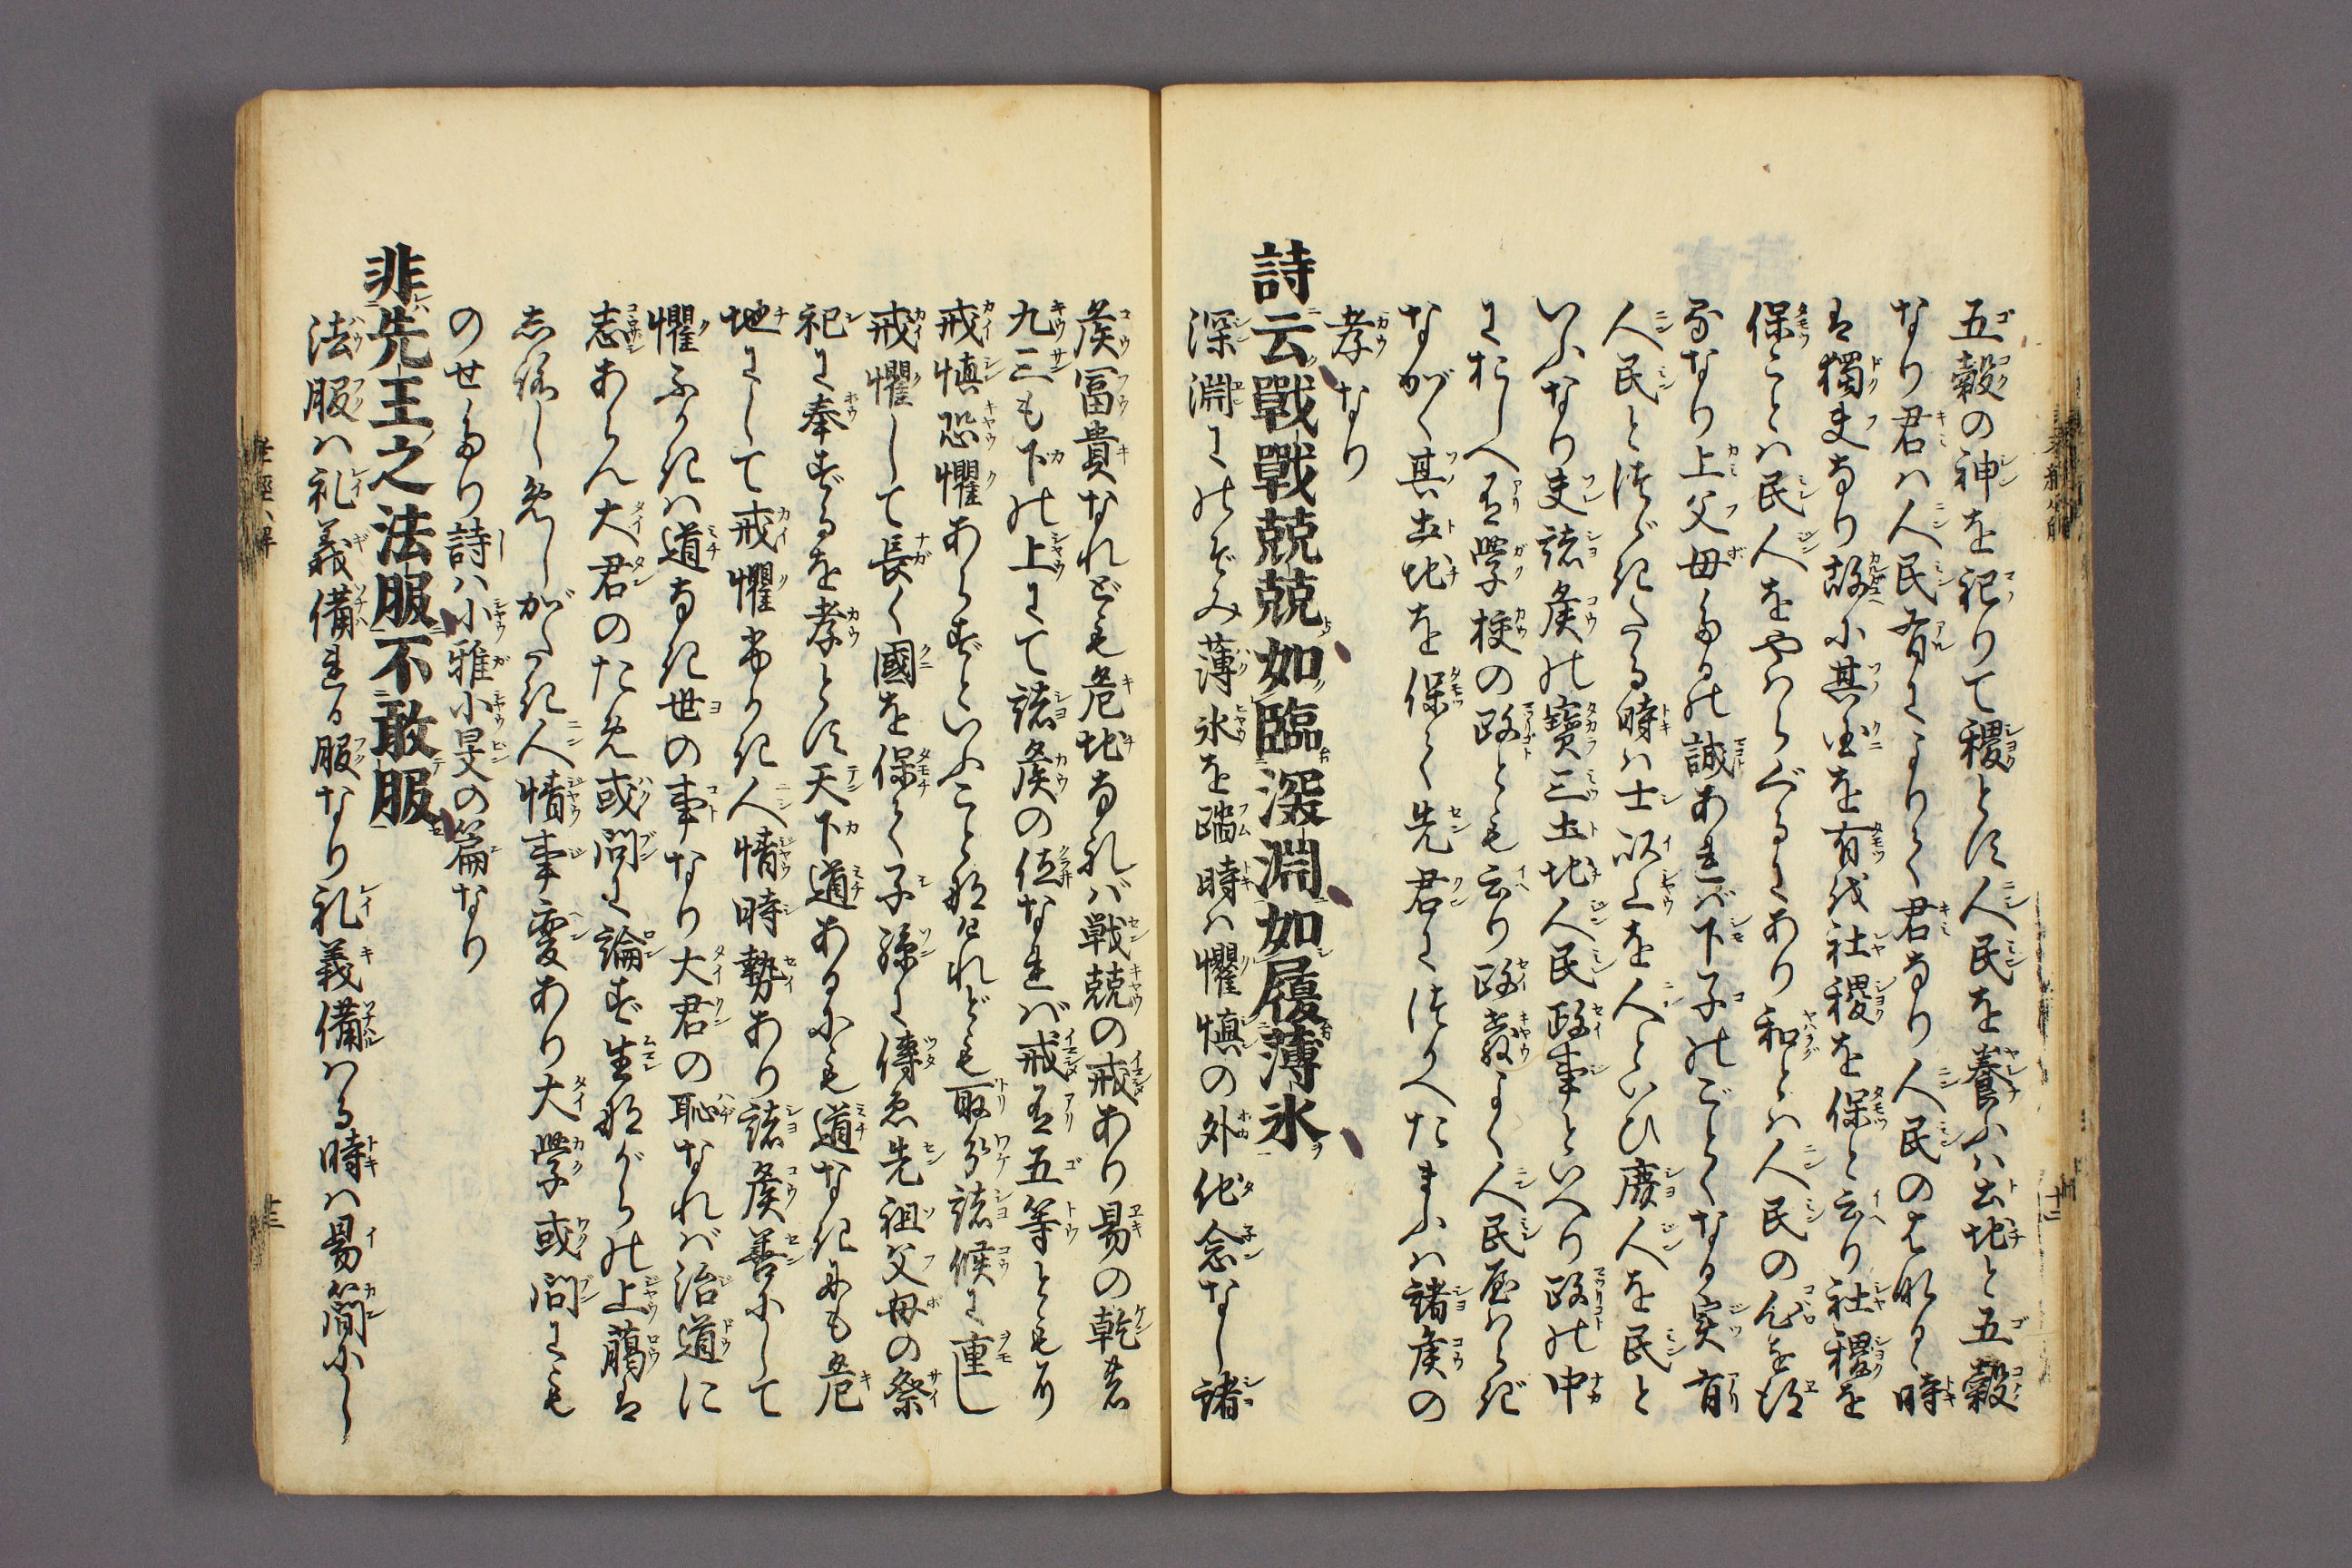 五穀の神を祀りて稷とす人民を養ふハ土地と五穀
なり君ハ人民有によりて君なり人民のをさむる時
は獨夫なり故に其国を有せば社稷を保と云り社稷を
保ことハ民人をやはらぐるにあり和とハ人民の心を得
るなり上父母たるの誠あれバ下子のごとくなる実有
人民と決ぎたる時ハ士以上を人といひ庶人を民と
いふなり又諸侯の寳三土地人民政事といへり政の中
におしへ有學校の政とも云り政教よく人民服はらぎ
ながく其土地を保て先君につかへたまふハ諸侯の
孝なり
詩云戰戰兢兢如臨深淵如履薄氷
深淵にのぞみ薄氷を踏時ハ懼慎の外他念なし諸
侯冨貴なれども危地なれバ戦兢の戒あり易の乾卦
九三も下の上にて諸侯の位なれバ戒有五等ともに
戒慎恐懼あらずといふこと無けれども取分諸候に重し
戒懼して長く國を保て子孫に傳へ先祖父母の祭
祀に奉ずるを孝とす天下道あるにも道なきにも危
地にして戒懼おほき人情時勢あり諸侯善にして
懼ふかきハ道なき世の事なり大君の恥なれバ治道に
志あらん大君のため或問に論ず生ながらの上臈は
しろしめしがたき人情事変あり大學或問にも
のせたり詩ハ小雅小旻の篇なり
非先王之法服不敢服
法服ハ礼義備れる服なり礼義備ハる時ハ易簡にし
孝經小解
十二
十三